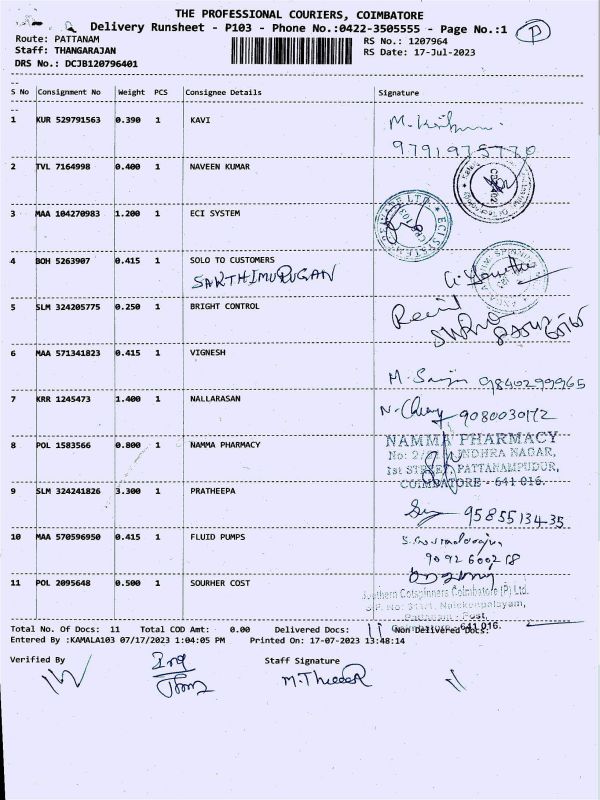 THE PROFESSIONAL COURIERS, COIMBATORE
Delivery Runsheet - P103 - Phone No.:0422-3505555 - Page No.:1 P
Route: PATTANAM RS No.: 1207964
Staff: THANGARAJAN RS Date: 17-Jul-2023
DRS No.: DCJB120796401
S No Consignment No Weight PCS Consignee Details Signature
1 KUR 529791563 0.390 1 KAVI
2 TVL 7164998 0.400 1 NAVEEN KUMAR
3 MAA 104270983 1.200 1 ECI SYSTEM
4 BOH 5263907 0.415 1 SOLO TO CUSTOMERS
SAKTHIMURUGAN
5 SLM 324205775 0.250 1 BRIGHT CONTROL
6 MAA 571341823 0.415 1 VIGNESH
9840299965
7 KRR 1245473 1.400 1 NALLARASAN
9080030172
8 POL 1583566 0.800 1 NAMMA PHARMACY
NAMMA PHARMACY
INDHRA NAGAR,
1st STREET, PATTANAMPUDUR,
COIMBATORE - 641 016.
9 SLM 324241826 3.300 1 PRATHEEPA
9585513435
10 MAA 570596950 0.415 1 FLUID PUMPS
11 POL 2095648 0.500 1 SOURHER COST
Southern Cotspinners Coimbatore (P) Ltd.
Total No. Of Docs: 11 Total COD Amt: 0.00 Delivered Docs: 11 Non Delivered Docs:
Entered By :KAMALA103 07/17/2023 1:04:05 PM Printed On: 17-07-2023 13:48:14
Verified By Staff Signature